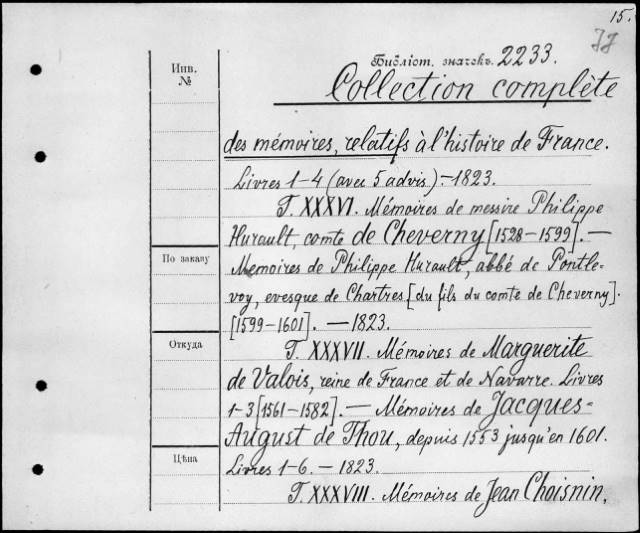 15.
Инв.
№
Библіот. значекъ. 2233.
Collection complète
des mémoires, relatifs à l'histoire de France.
Livres 1-4 (avec 5 advis). - 1823.
T. XXXVI. Mémoires de messire Philippe
Hurault, comte de Cheverny [1528-1599]. —
По заказу
Memoires de Philippe Hurault, abbé de Pontle-
voy, evesque de Chartres [du fils du comte de Cheverny].
[1599-1601]. — 1823.
Откуда
T. XXXVII. Mémoires de Marguerite
de Valois, reine de France et de Navarre. Livres
1-3 [1561-1582]. — Mémoires de Jacques-
August de Thou, depuis 1553 jusqu'en 1601.
Цѣна
Livres 1-6. - 1823.
T. XXXVIII. Mémoires de Jean Choisnin,